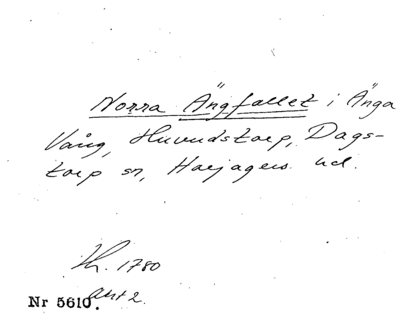 Norra Ängfallet i Änga
Vång, Huvudstorp, Dags-
torp sn, Harjagers hd.
Kh. 1780
akt 2.
Nr 5610.